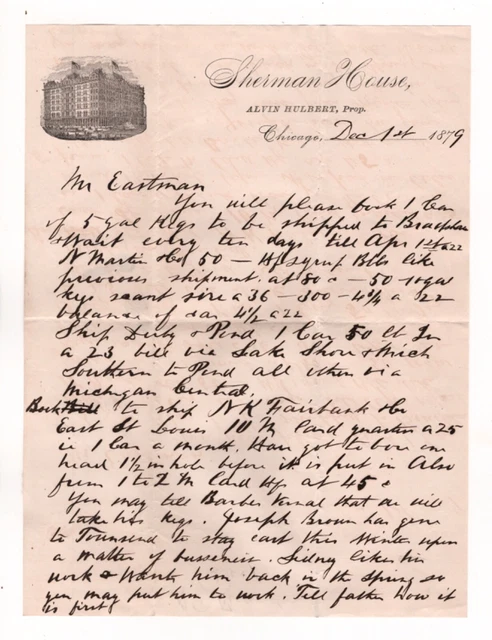 Sherman House,
ALVIN HULBERT, Prop.
Chicago, Dec 1st 1879
Mr Eastman
You will please book 1 Car
of 5 Gal Kegs to be shipped to
& Wait every ten days till Apr 1st a 22
N Martin & Co 50 — Hf syrup Bbls like
previous shipment at 80 c — 50 - 10 gal
kegs scant size a 36 — 300 - 4¼ a 22
balance of car 4½ a 22
Ship & Pond 1 Car 50 Ct In
a 23 bill via Lake Shore & Mich
Southern to Pond all others via
Michigan Central,
Book to ship N K Fairbank & Co
East St Louis 10 M Lard quarters a 25
ie 1 Car a month. Have got to bore one
head 1½ in hole before it is put in Also
from 1 to 2 M Lard Hfs at 45 c
You may tell Barber that we will
take his kegs. Joseph Brown has gone
to Townsend to stay east this Winter upon
a matter of bussiness. Sidney likes his
work & Wants him back in the Spring so
you may put him to work. Tell father how it
is first